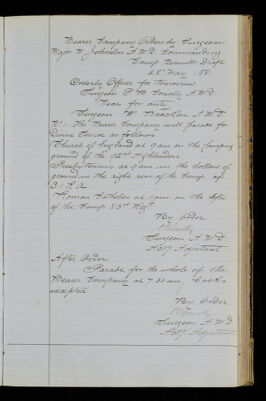 Bearer Company Orders by Surgeon
Major W. Johnston A.M.D. Commanding
Camp Bennetts Drift
28th May
Orderly Officer for tomorrow
Surgeon
Next for duty
Surgeon W. A.M.D.
The Bearer Company will parade for
Divine Service as follows
Church of England at 9 am on the Camping
ground of the 82nd Highlanders
Presbyterians at 9 am in the bottom of
ground in the right rear of the Camp of
R.A
Roman Catholics at 9 am on the left
of the Camp Regt
By Order
Surgeon A.M.D
Adjutant
After Order
Parade for the whole of the
Bearer Company at 7.30 am Cooks
excepted
By Order
Surgeon A.M.D
Adjutant